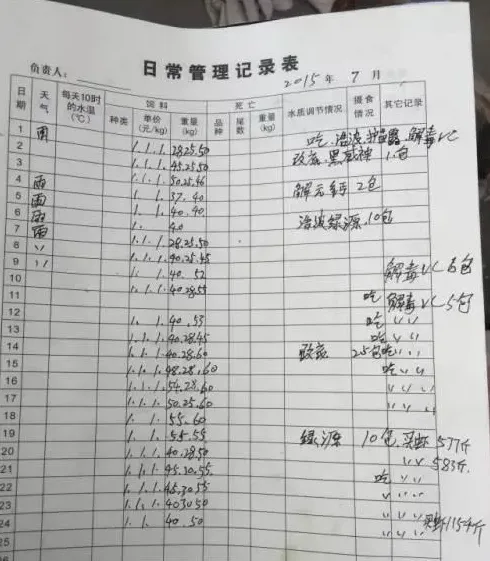 日常管理记录表
负责人：
2015年 7月
日期 天气 每天10时的水温(℃) 饲料 死亡 水质调节情况 摄食情况 其它记录
种类 单价(元/kg) 重量(kg) 品种 尾数 重量(kg)
1 雨 解毒VC
2 1.1.1 28.25.50 1包
3 1.1.1 45.25.50
4 雨 1.1.1 50.25.46 2包
5 雨 1.1. 37.40
6 雨 1.1. 40.40 绿源 10包
7 雨 1. 40
8 〃 1.1.1 28.25.50
9 〃 1.1.1. 40.25.45 解毒VC 6包
10 1.1. 40.52
11 1.1.1 40.28.55 吃 解毒VC 5包
12 1.1. 40.53 吃 〃〃
13 1.1.1. 40.28.45 吃 〃〃
14 1.1.1. 40.28.60 吃 〃〃
15 1.1.1. 48.28.60 吃 〃〃
16 1.1.1. 54.28.60 〃〃
17 1.1.1. 50.25.60 〃〃
18 1.1. 55.60
19 1.1. 55.55 绿源 10包 买虾577斤
20 1.1.1. 40.28.50 〃〃 583斤
21 1.1.1. 45.30.55 吃 〃
22 1.1.1. 45.30.55 〃〃
23 1.1.1. 40.30.50 〃〃
24 1.1. 40.50 〃〃 买虾1154斤
25
26